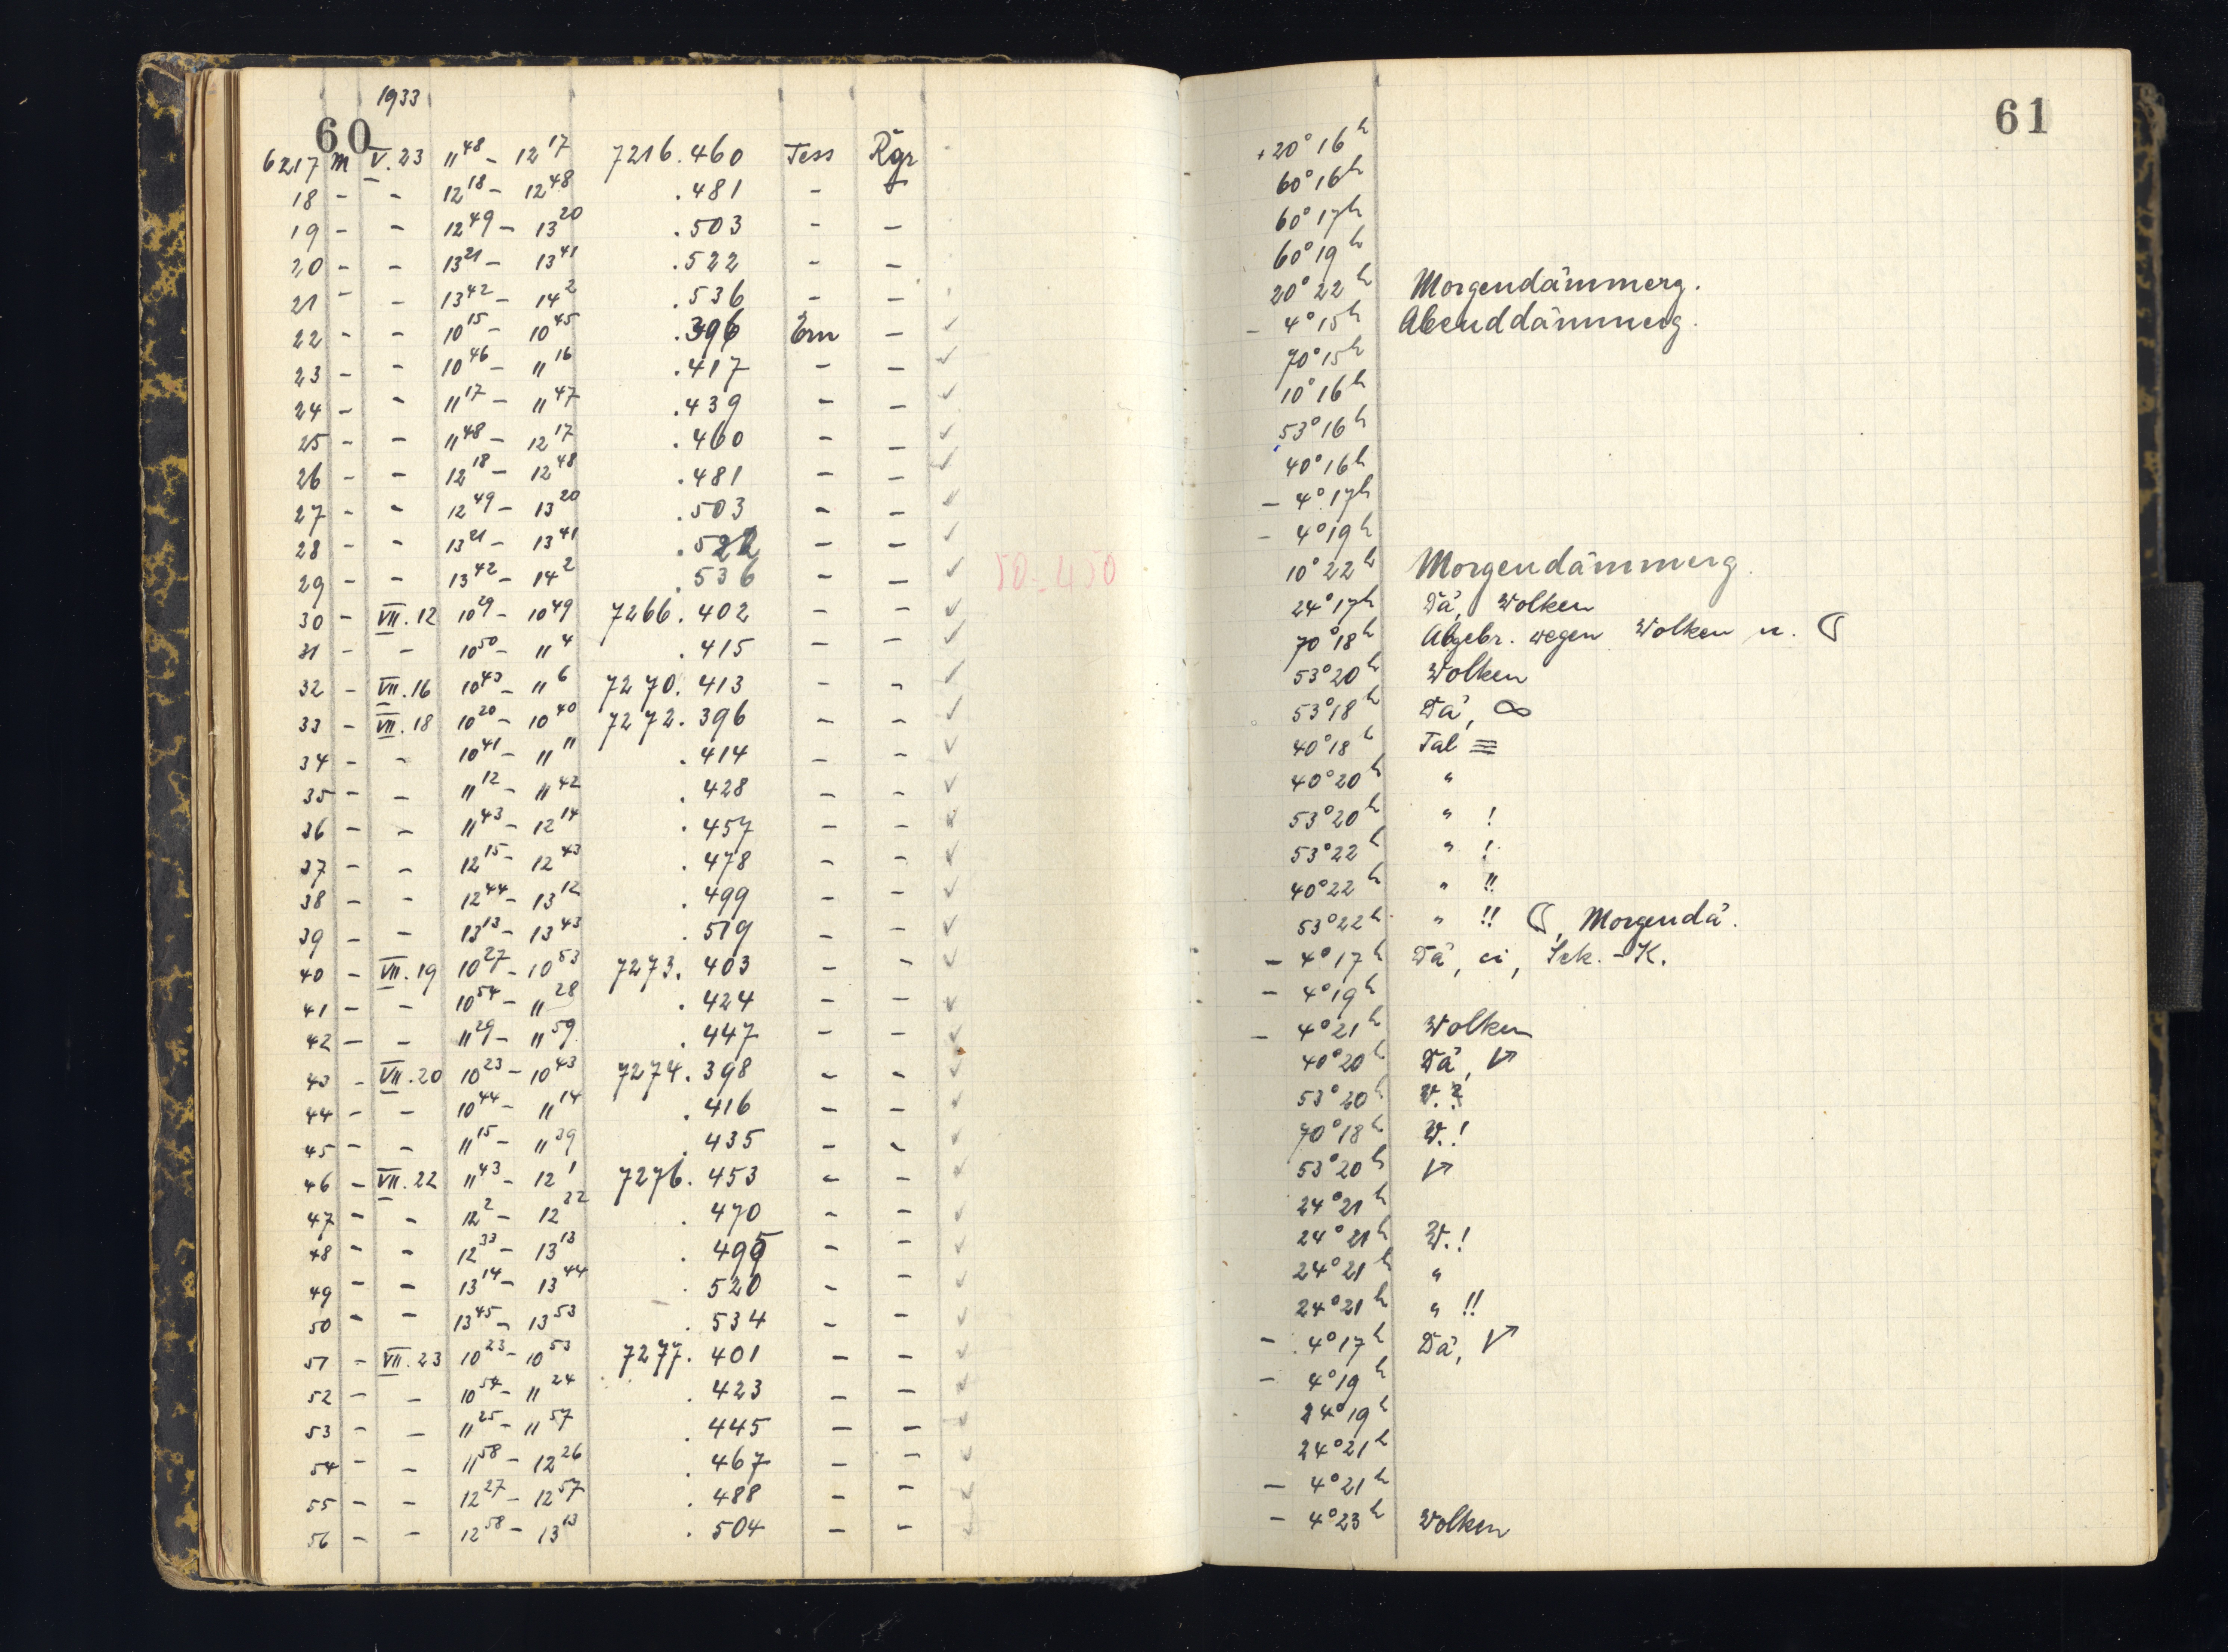 1933
60
6217 M V.23 11 48 – 12 17 7216.460 Tess Rgr
18 – – 12 18 – 12 48 .481 –
19 – – 12 49 – 13 20 .503 – –
20 – – 13 21 – 13 41 .522 – –
21 – – 13 42 – 14 2 .536 – –
22 – – 10 15 – 10 45 .396 Ern – ✓
23 – – 10 46 – 11 16 .417 – – ✓
24 – – 11 17 – 11 47 .439 – – ✓
25 – – 11 48 – 12 17 .460 – – ✓
26 – – 12 18 – 12 48 .481 – – ✓
27 – – 12 49 – 13 20 .503 – – ✓
28 – – 13 21 – 13 41 .522 – – ✓
29 – – 13 42 – 14 2 .536 – – ✓ 50-450
30 – VII.12 10 29 – 10 49 7266.402 – – ✓
31 – – 10 50 – 11 4 .415 – – ✓
32 – VII.16 10 43 – 11 6 7270.413 – – ✓
33 – VII.18 10 20 – 10 40 7272.396 – – ✓
34 – – 10 41 – 11 11 .414 – – ✓
35 – – 11 12 – 11 42 .428 – – ✓
36 – – 11 43 – 12 14 .457 – – ✓
37 – – 12 15 – 12 43 .478 – – ✓
38 – – 12 44 – 13 12 .499 – – ✓
39 – – 13 13 – 13 43 .519 – – ✓
40 – VII.19 10 27 – 10 53 7273.403 – – ✓
41 – – 10 54 – 11 28 .424 – – ✓
42 – – 11 29 – 11 59 .447 – – ✓
43 – VII.20 10 23 – 10 43 7274.398 – – ✓
44 – – 10 44 – 11 14 .416 – – ✓
45 – – 11 15 – 11 39 .435 – – ✓
46 – VII.22 11 43 – 12 1 7276.453 – – ✓
47 – – 12 2 – 12 32 .470 – – ✓
48 – – 12 33 – 13 13 .495 – – ✓
49 – – 13 14 – 13 44 .520 – – ✓
50 – – 13 45 – 13 53 .534 – – ✓
51 – VII.23 10 23 – 10 53 7277.401 – – ✓
52 – – 10 54 – 11 24 .423 – – ✓
53 – – 11 25 – 11 57 .445 – – ✓
54 – – 11 58 – 12 26 .467 – – ✓
55 – – 12 27 – 12 57 .488 – – ✓
56 – – 12 58 – 13 13 .504 – – ✓
61
+20° 16h
60° 16h
60° 17h
60° 19h
20° 22h Morgendämmerg.
– 4° 15h Abenddämmerg.
70° 15h
10° 16h
53° 16h
40° 16h
– 4° 17h
– 4° 19h
10° 22h Morgendämmerg.
24° 17h Dä, Wolken
70° 18h Abgebr. wegen Wolken u. ☾
53° 20h Wolken
53° 18h Dä, ∞
40° 18h Tal ≡
40° 20h "
53° 20h " !
53° 22h " !
40° 22h " !!
53° 22h " !! ☾, Morgendä.
– 4° 17h Dä, ci, Sek.-K.
– 4° 19h
– 4° 21h Wolken
40° 20h Dä,
53° 20h W.?
70° 18h W.!
53° 20h
24° 21h
24° 21h W.!
24° 21h "
24° 21h " !!
– 4° 17h Dä,
– 4° 19h
24° 19h
24° 21h
– 4° 21h
– 4° 23h Wolken